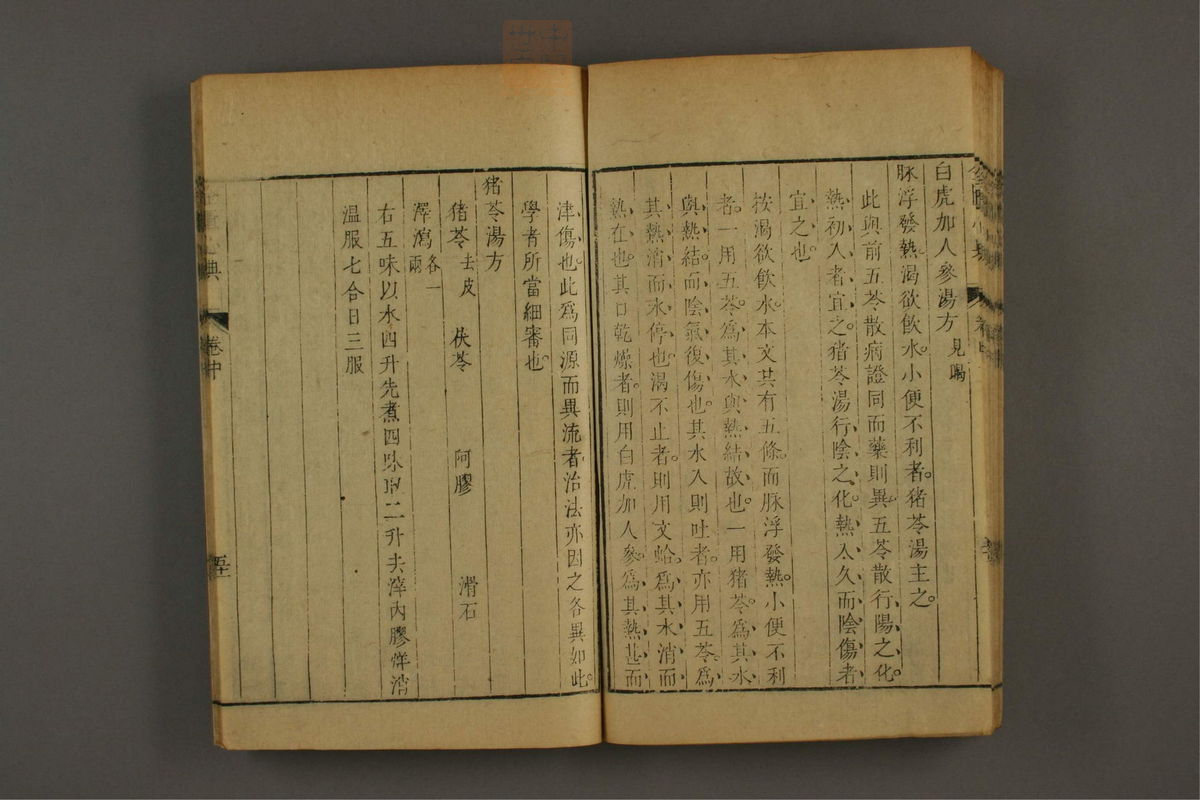 白虎加人參湯方見暍
脉浮發熱渴欲飲水。小便不利者。猪苓湯主之。
此與前五苓散病證同而藥則異五苓散行陽之化。
熱初入者宜之。猪苓湯行陰之化。熱入久而陰傷者
宜之也
按渴欲飲水本文共有五條。而脉浮發熱。小便不利
者。一用五苓。爲其水與熱結故也。一用猪苓。爲其水
與熱結。而陰氣復傷也。其水入則吐者。亦用五苓。爲
其熱消而水停也。渴不止者。則用文蛤。爲其水消而
熱在也。其口乾燥者。則用白虎加人參。爲其熱甚而
津傷也。此爲同源而異流者治法亦因之各異如此。
學者所當細審也。
猪苓湯方
猪苓去皮 茯苓 阿膠 滑石
澤瀉各一兩
右五味以水四升先煮四味取二升去滓內膠烊消
溫服七合日三服
典 卷中 五十
卷中